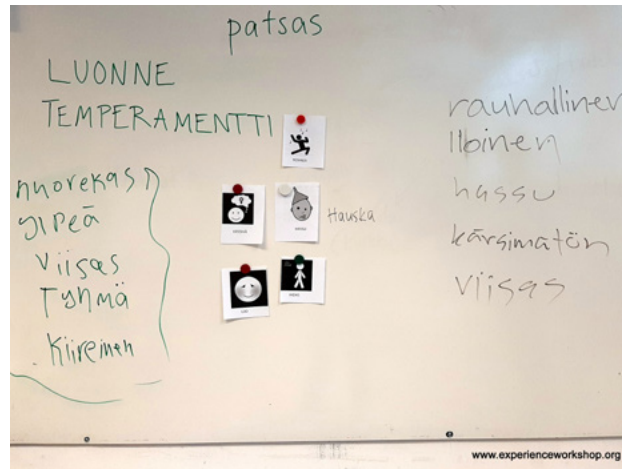 patsas
LUONNE
TEMPERAMENTTI
nuorekas
ylpeä
viisas
Tyhmä
Kiireinen
Hauska
rauhallinen
Iloinen
hassu
kärsimätön
viisas
www.experienceworkshop.org